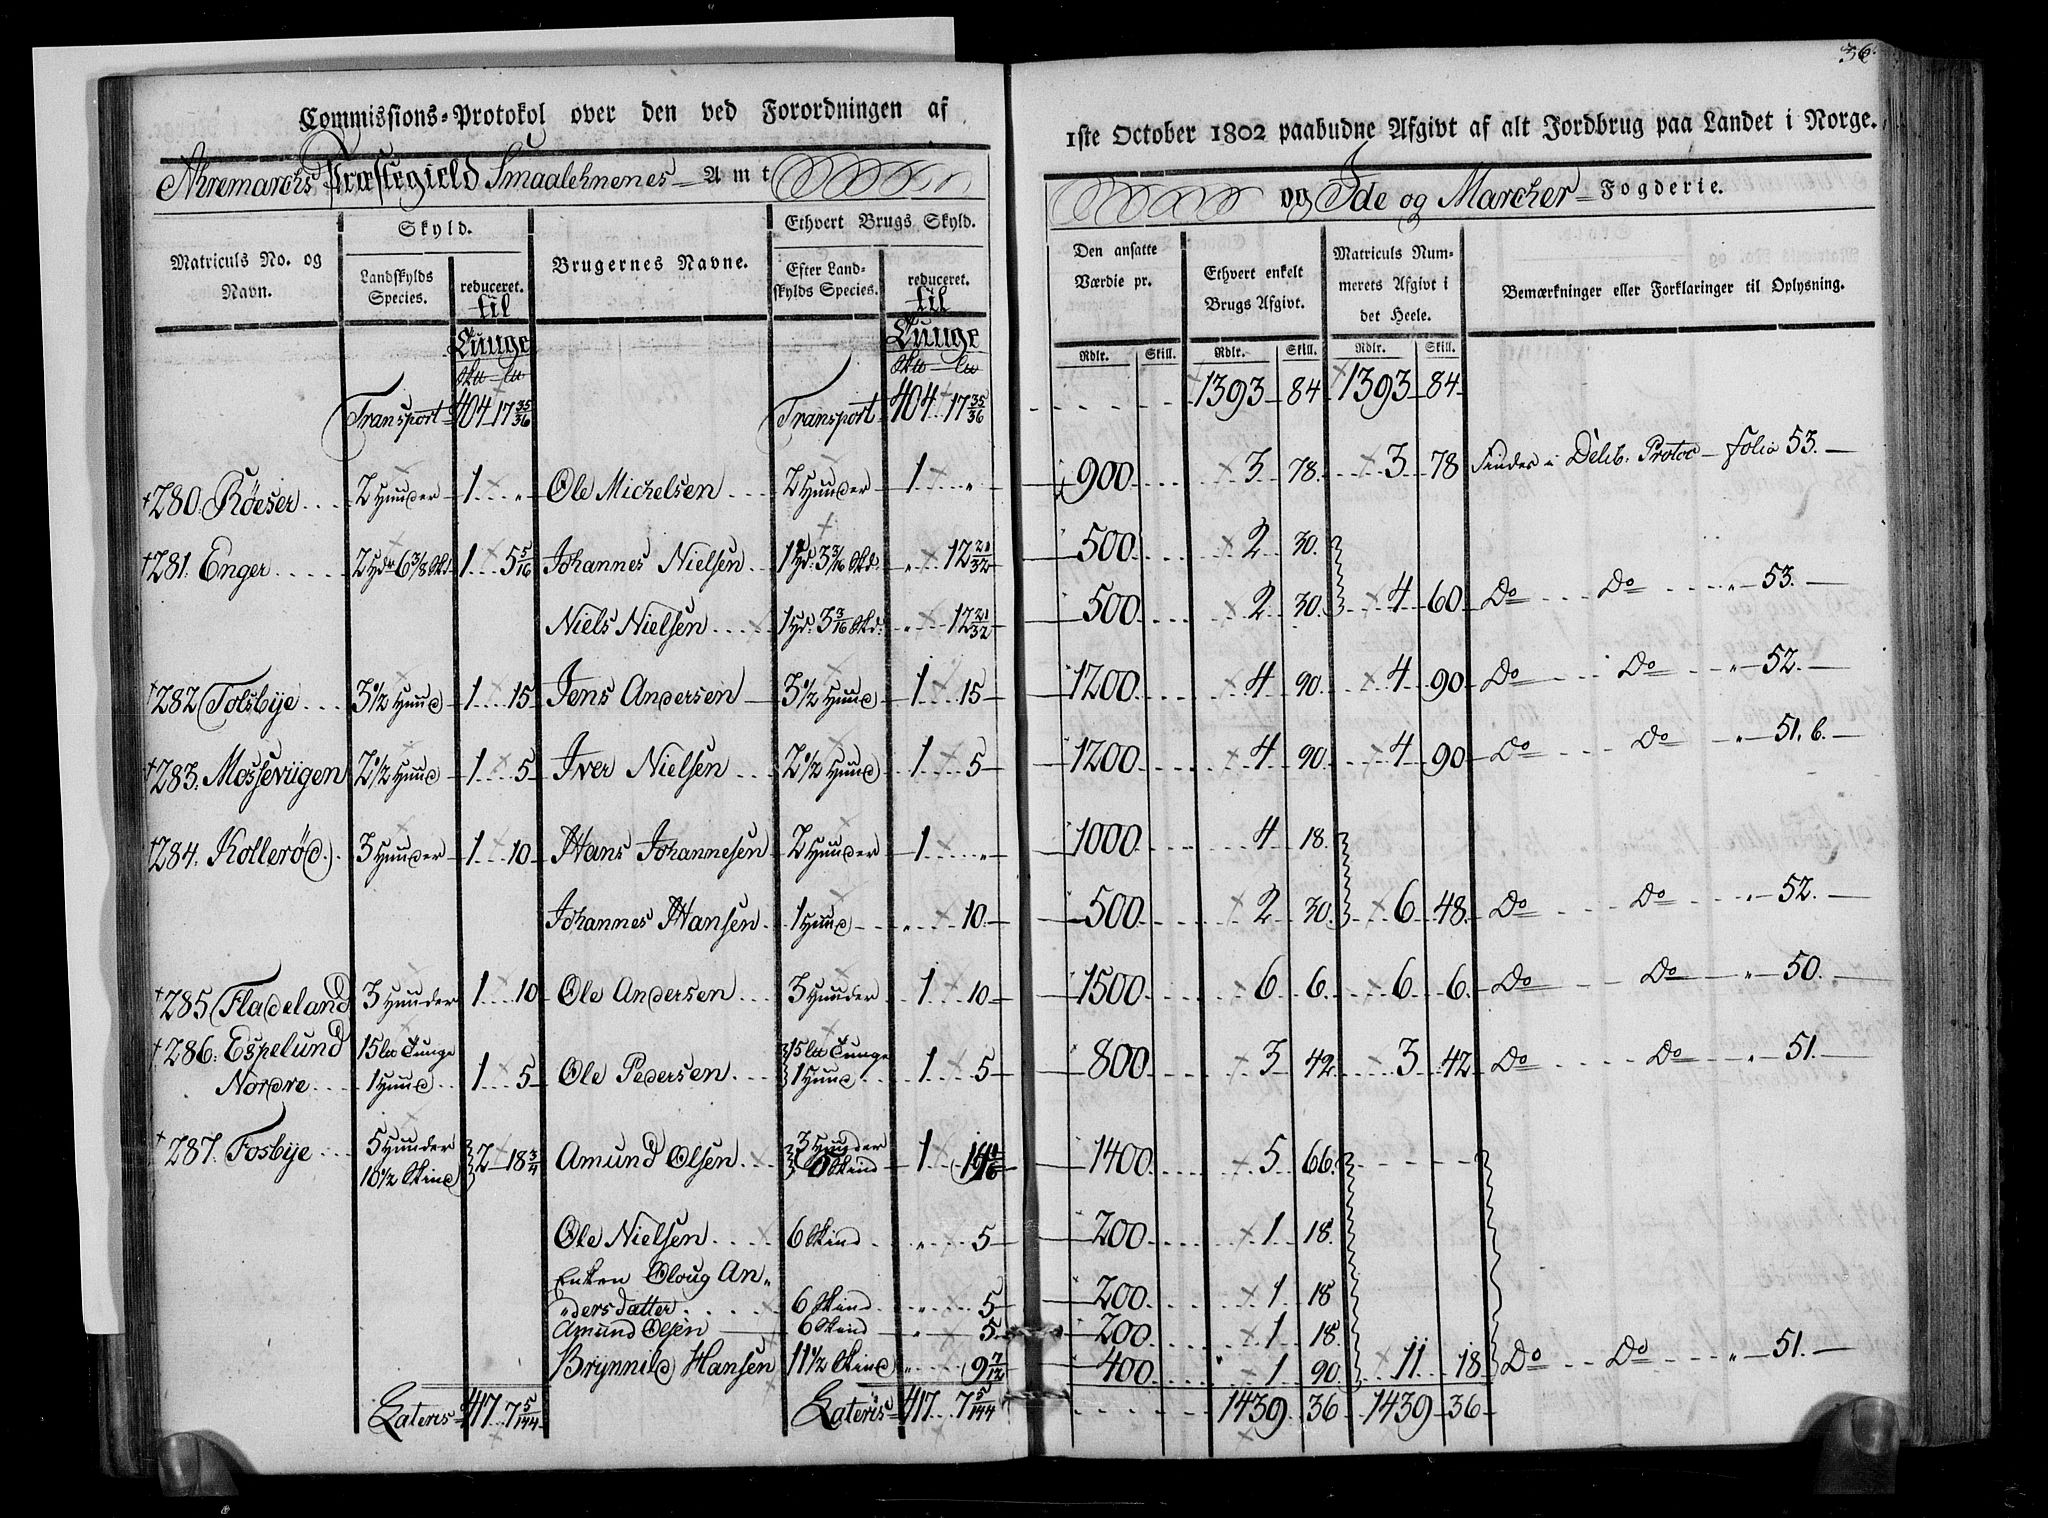 36.
Commissions-Protokol over den ved Forordningen af 1ste October 1802 paabudne Afgivt af alt Jordbrug paa Landet i Norge.
Ahremarchs Præstegield Smaalehnenes Amt og Ide og Marcher Fogderie.
Matriculs No. og Navn. | Skyld. Landskylds Species. | reduceret. til Tunge | Brugernes Navne. | Ethvert Brugs Skyld. Efter Landskylds Species. | reduceret. til Tunge | Den ansatte Værdie pr. | Ethvert enkelt Brugs Afgivt. | Matriculs Nummerets Afgivt i det Heele. | Bemærkninger eller Forklaringer til Oplysning.
Rdlr. Skill. | Rdlr. Skill. | Rdlr. Skill.
Transport 404 17 35/36 | Transport 404 17 35/36 | 1393 84 | 1393 84
†280. Röeser | 2 Huuder | 1 " | Ole Michelsen | 2 Huuder | 1 " | 900 | 3 78 | 3 78 | Findes i Delib. Protoc folio 53.
†281. Enger | 2 Hdr 6 3/8 Skd | 1 5 5/16 | Johannes Nielsen | 1 Hd. 3 3/16 Skd. | " 12 21/32 | 500 | 2 30
Niels Nielsen | 1 Hd. 3 3/16 Skd. | " 12 21/32 | 500 | 2 30 | 4 60 | Do Do " 53.
†282 Tolsbÿe | 3 1/2 Huud | 1 15 | Jens Andersen | 3 1/2 Huud | 1 15 | 1200 | 4 90 | 4 90 | Do Do " 52.
†283. Mossevügen | 2 1/2 Huud | 1 5 | Iver Nielsen | 2 1/2 Huud | 1 5 | 1200 | 4 90 | 4 90 | Do Do " 51. b.
†284. Kolleröd | 3 Huuder | 1 10 | Hans Johannesen | 2 Huuder | 1 " | 1000 | 4 18
Johannes Hansen | 1 Huud | " 10 | 500 | 2 30 | 6 48 | Do Do " 52.
†285 Fladeland | 3 Huuder | 1 10 | Ole Andersen | 3 Huuder | 1 10 | 1500 | 6 6 | 6 6 | Do Do " 50.
†286. Espelund Nordre | 15 ltt Tunge 1 Huud | 1 5 | Ole Pedersen | 15 ltt Tunge 1 Huud | 1 5 | 800 | 3 42 | 3 42 | Do Do " 51.
†287. Fosbÿe | 5 Huuder 10 1/2 Skind | 2 18 3/4 | Amund Olsen | 3 Huuder Skind | 1 | 1400 | 5 66
Ole Nielsen | 6 Skind | " 5 | 200 | 1 18
Enken Oloug An-
dersdatter | 6 Skind | " 5 | 200 | 1 18
Amund Olsen | 6 Skind | " 5 | 200 | 1 18
Brÿnnild Hansen | 11 1/2 Skind | " 9 7/12 | 400 | 1 90 | 11 18 | Do Do " 51.
Lateris 417 7 5/144 | Lateris 417 7 5/144 | 1439 36 | 1439 36